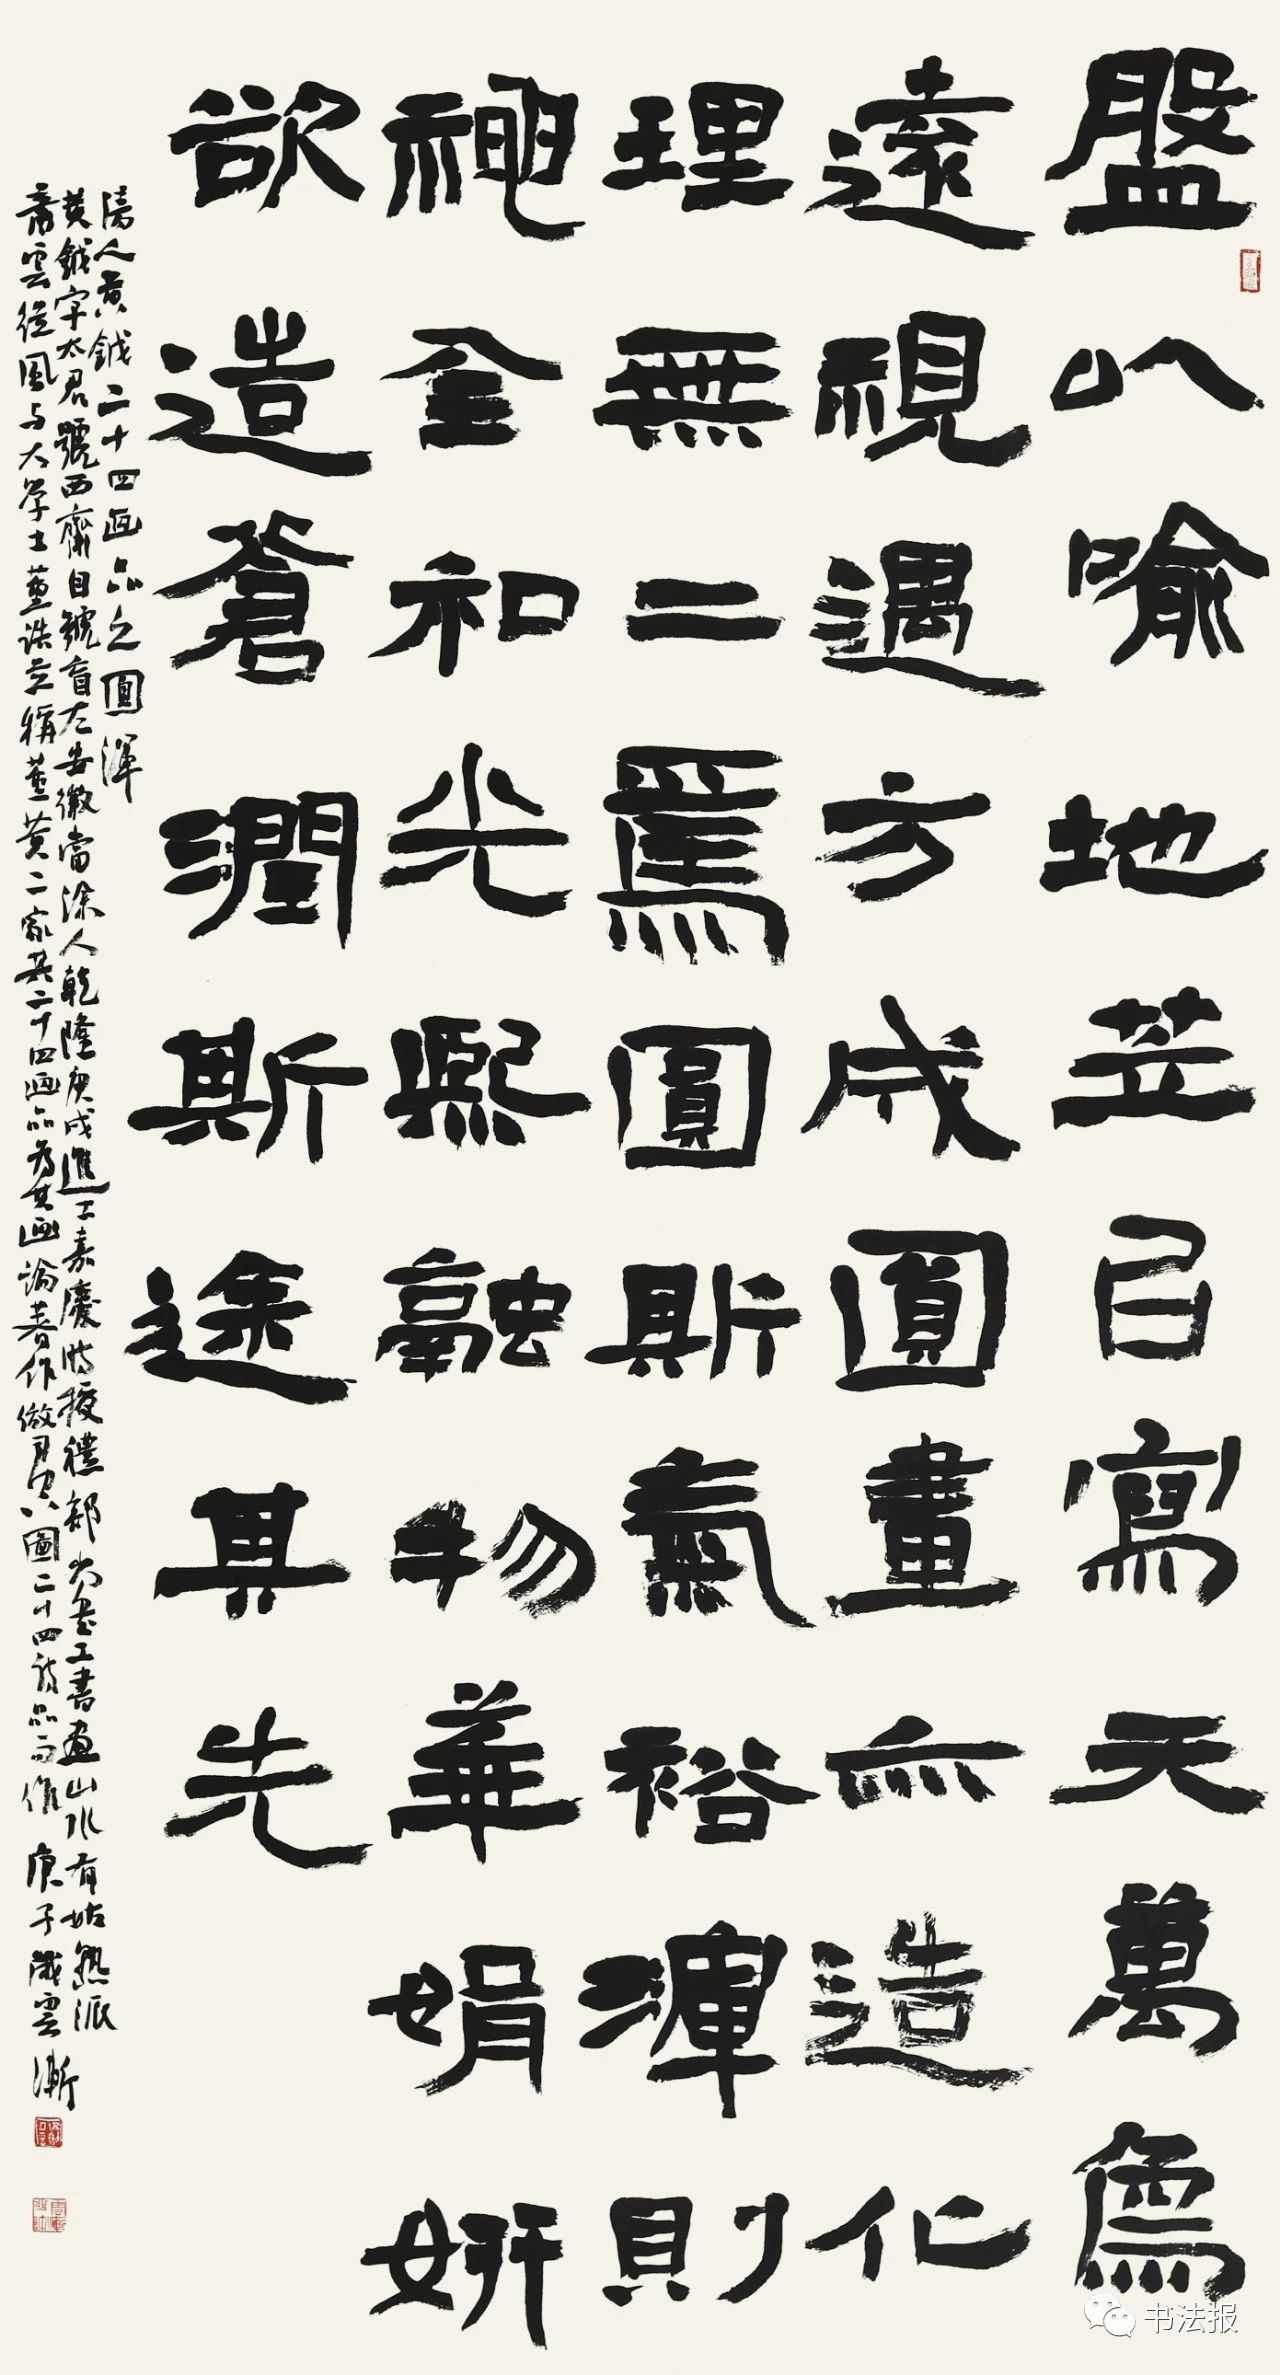 盤以喻地笠以寫天萬象
遠視遇方成圓畫亦造化
理無二焉圓斯氣裕渾則
神全和光熙融物華娟妍
欲造蒼潤斯途其先
清人黃鉞二十四画品之圓渾
黃鉞字左君號西齋自號盲左安徽當涂人乾隆庚戌進士嘉慶時授禮部尚書工書畫山水有姑熟派
蕭雲從風与大學士董誥並稱董黃二家其二十四画品為其画論著作倣司空圖二十四詩品而作庚子歲雲漸
书法报